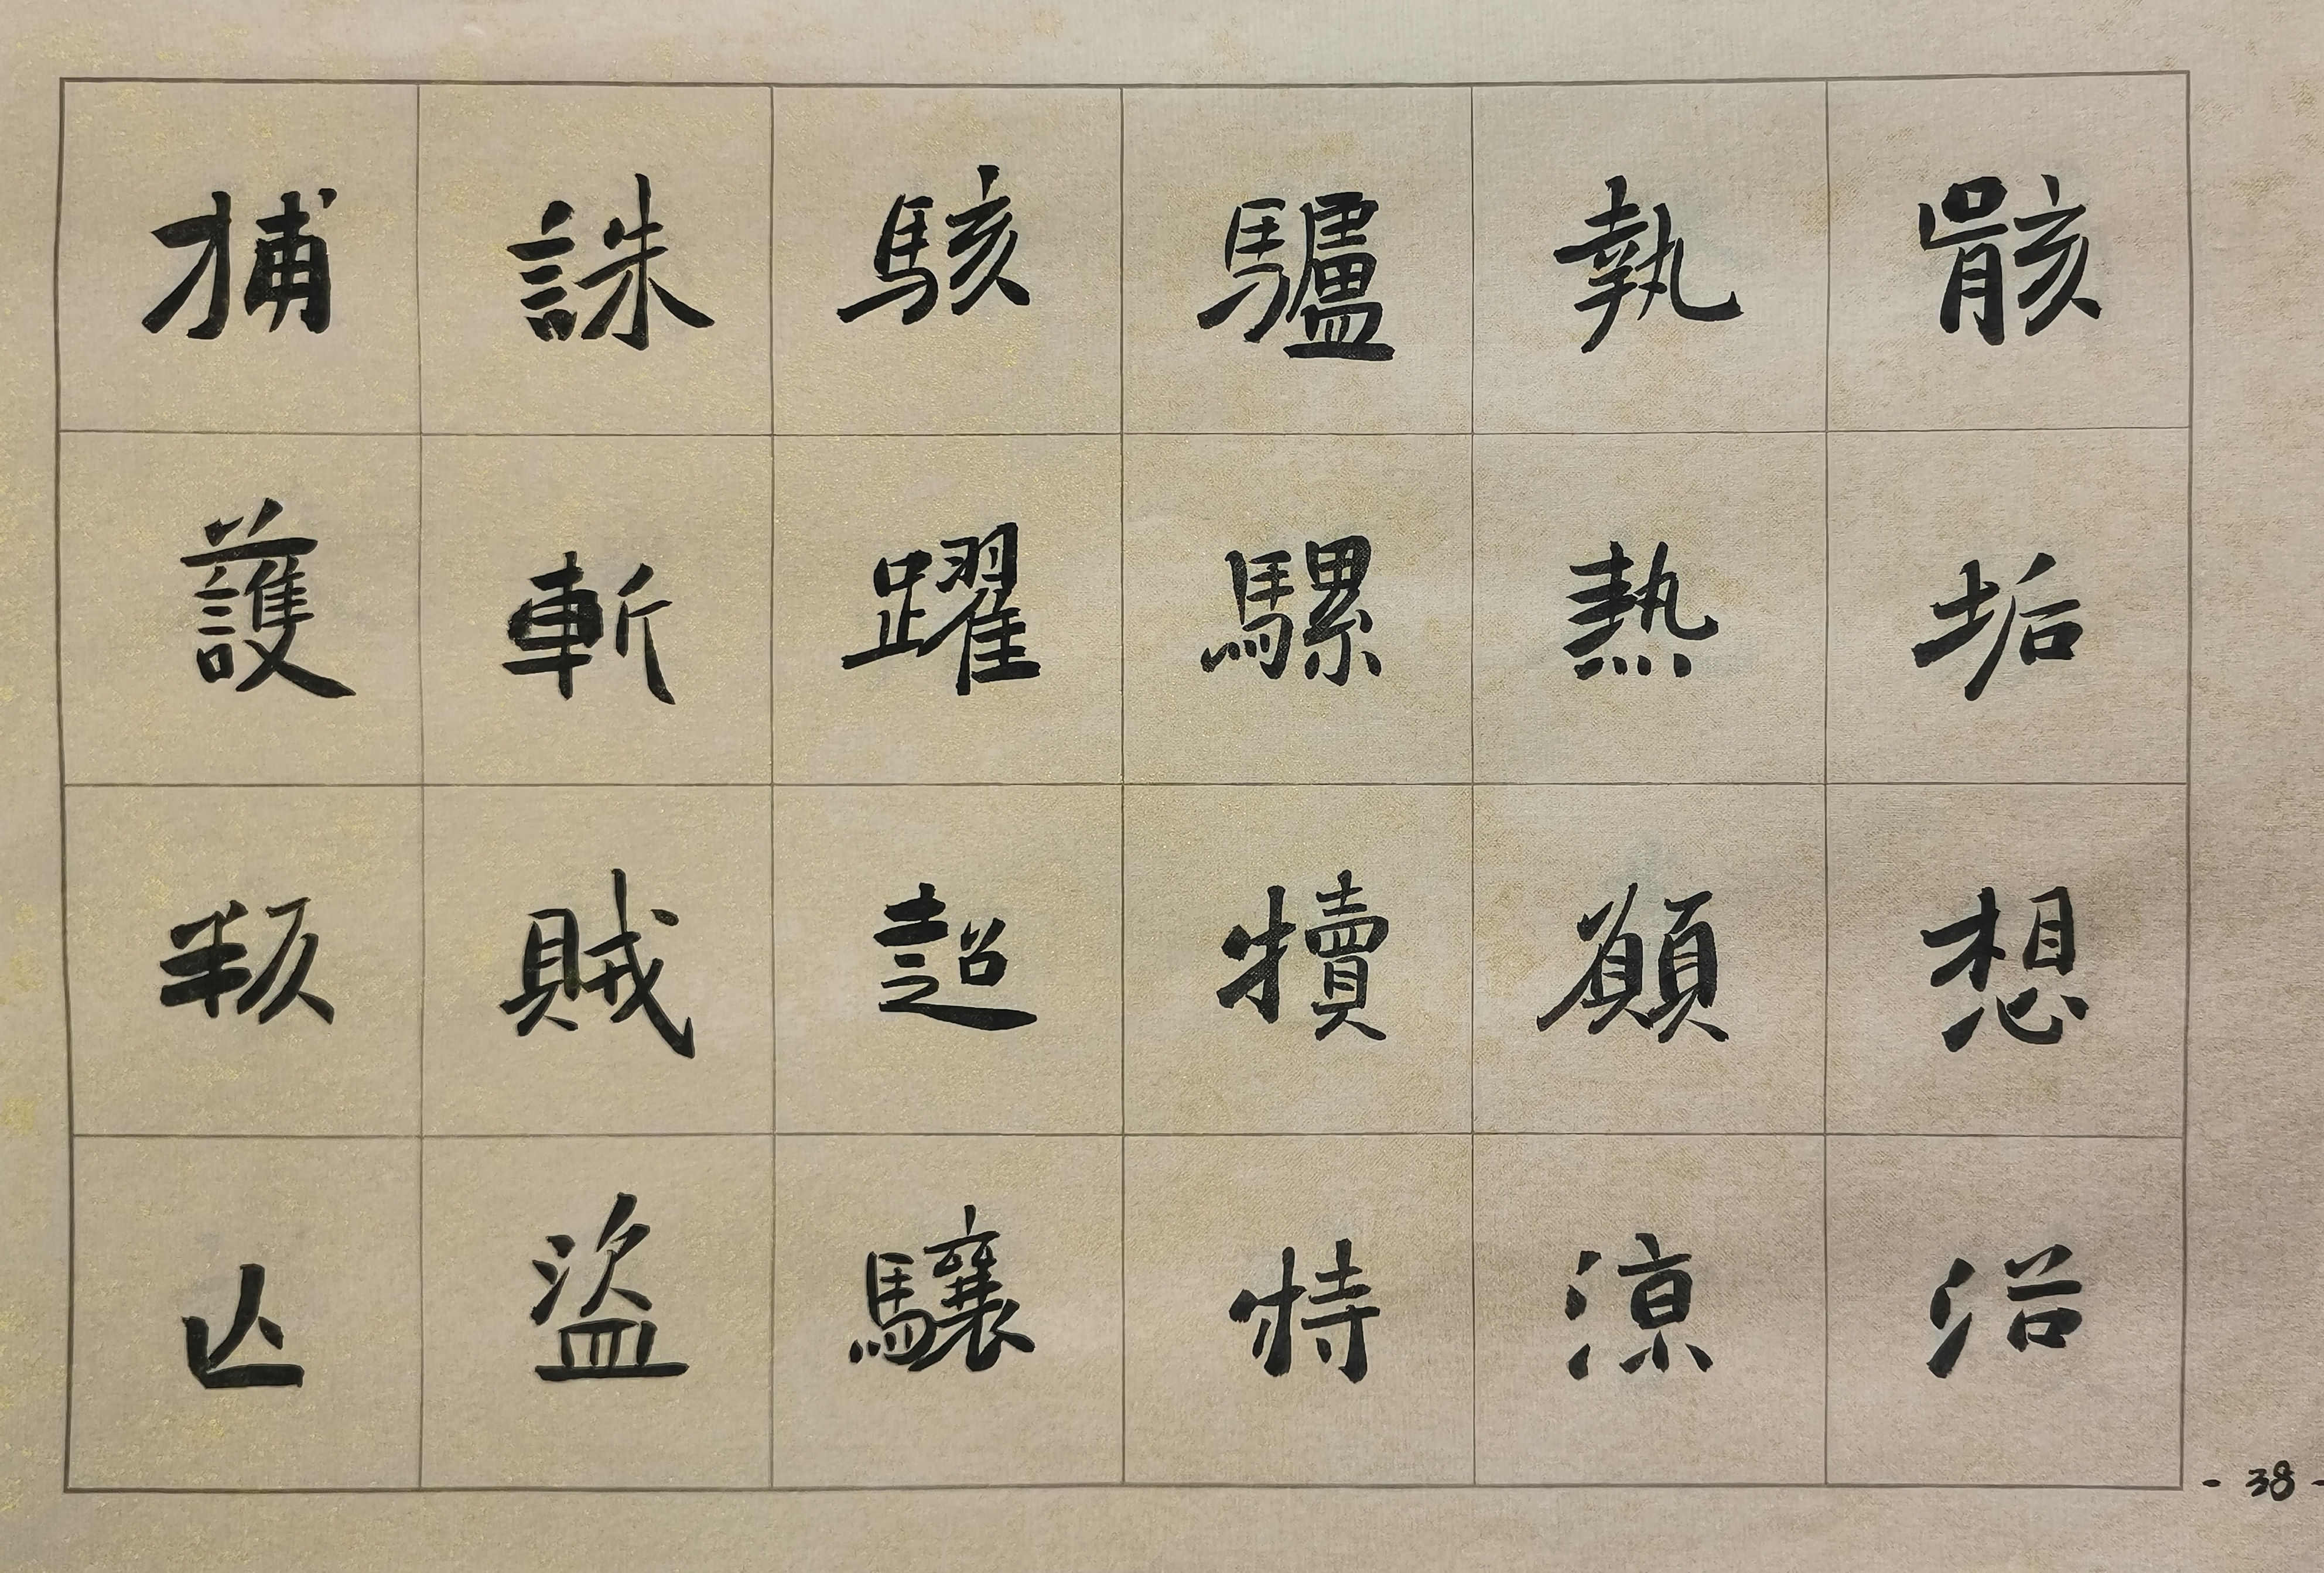 骸垢想浴
執熱願涼
驢騾犢特
駭躍超驤
誅斬賊盜
捕護叛亾
- 38 -